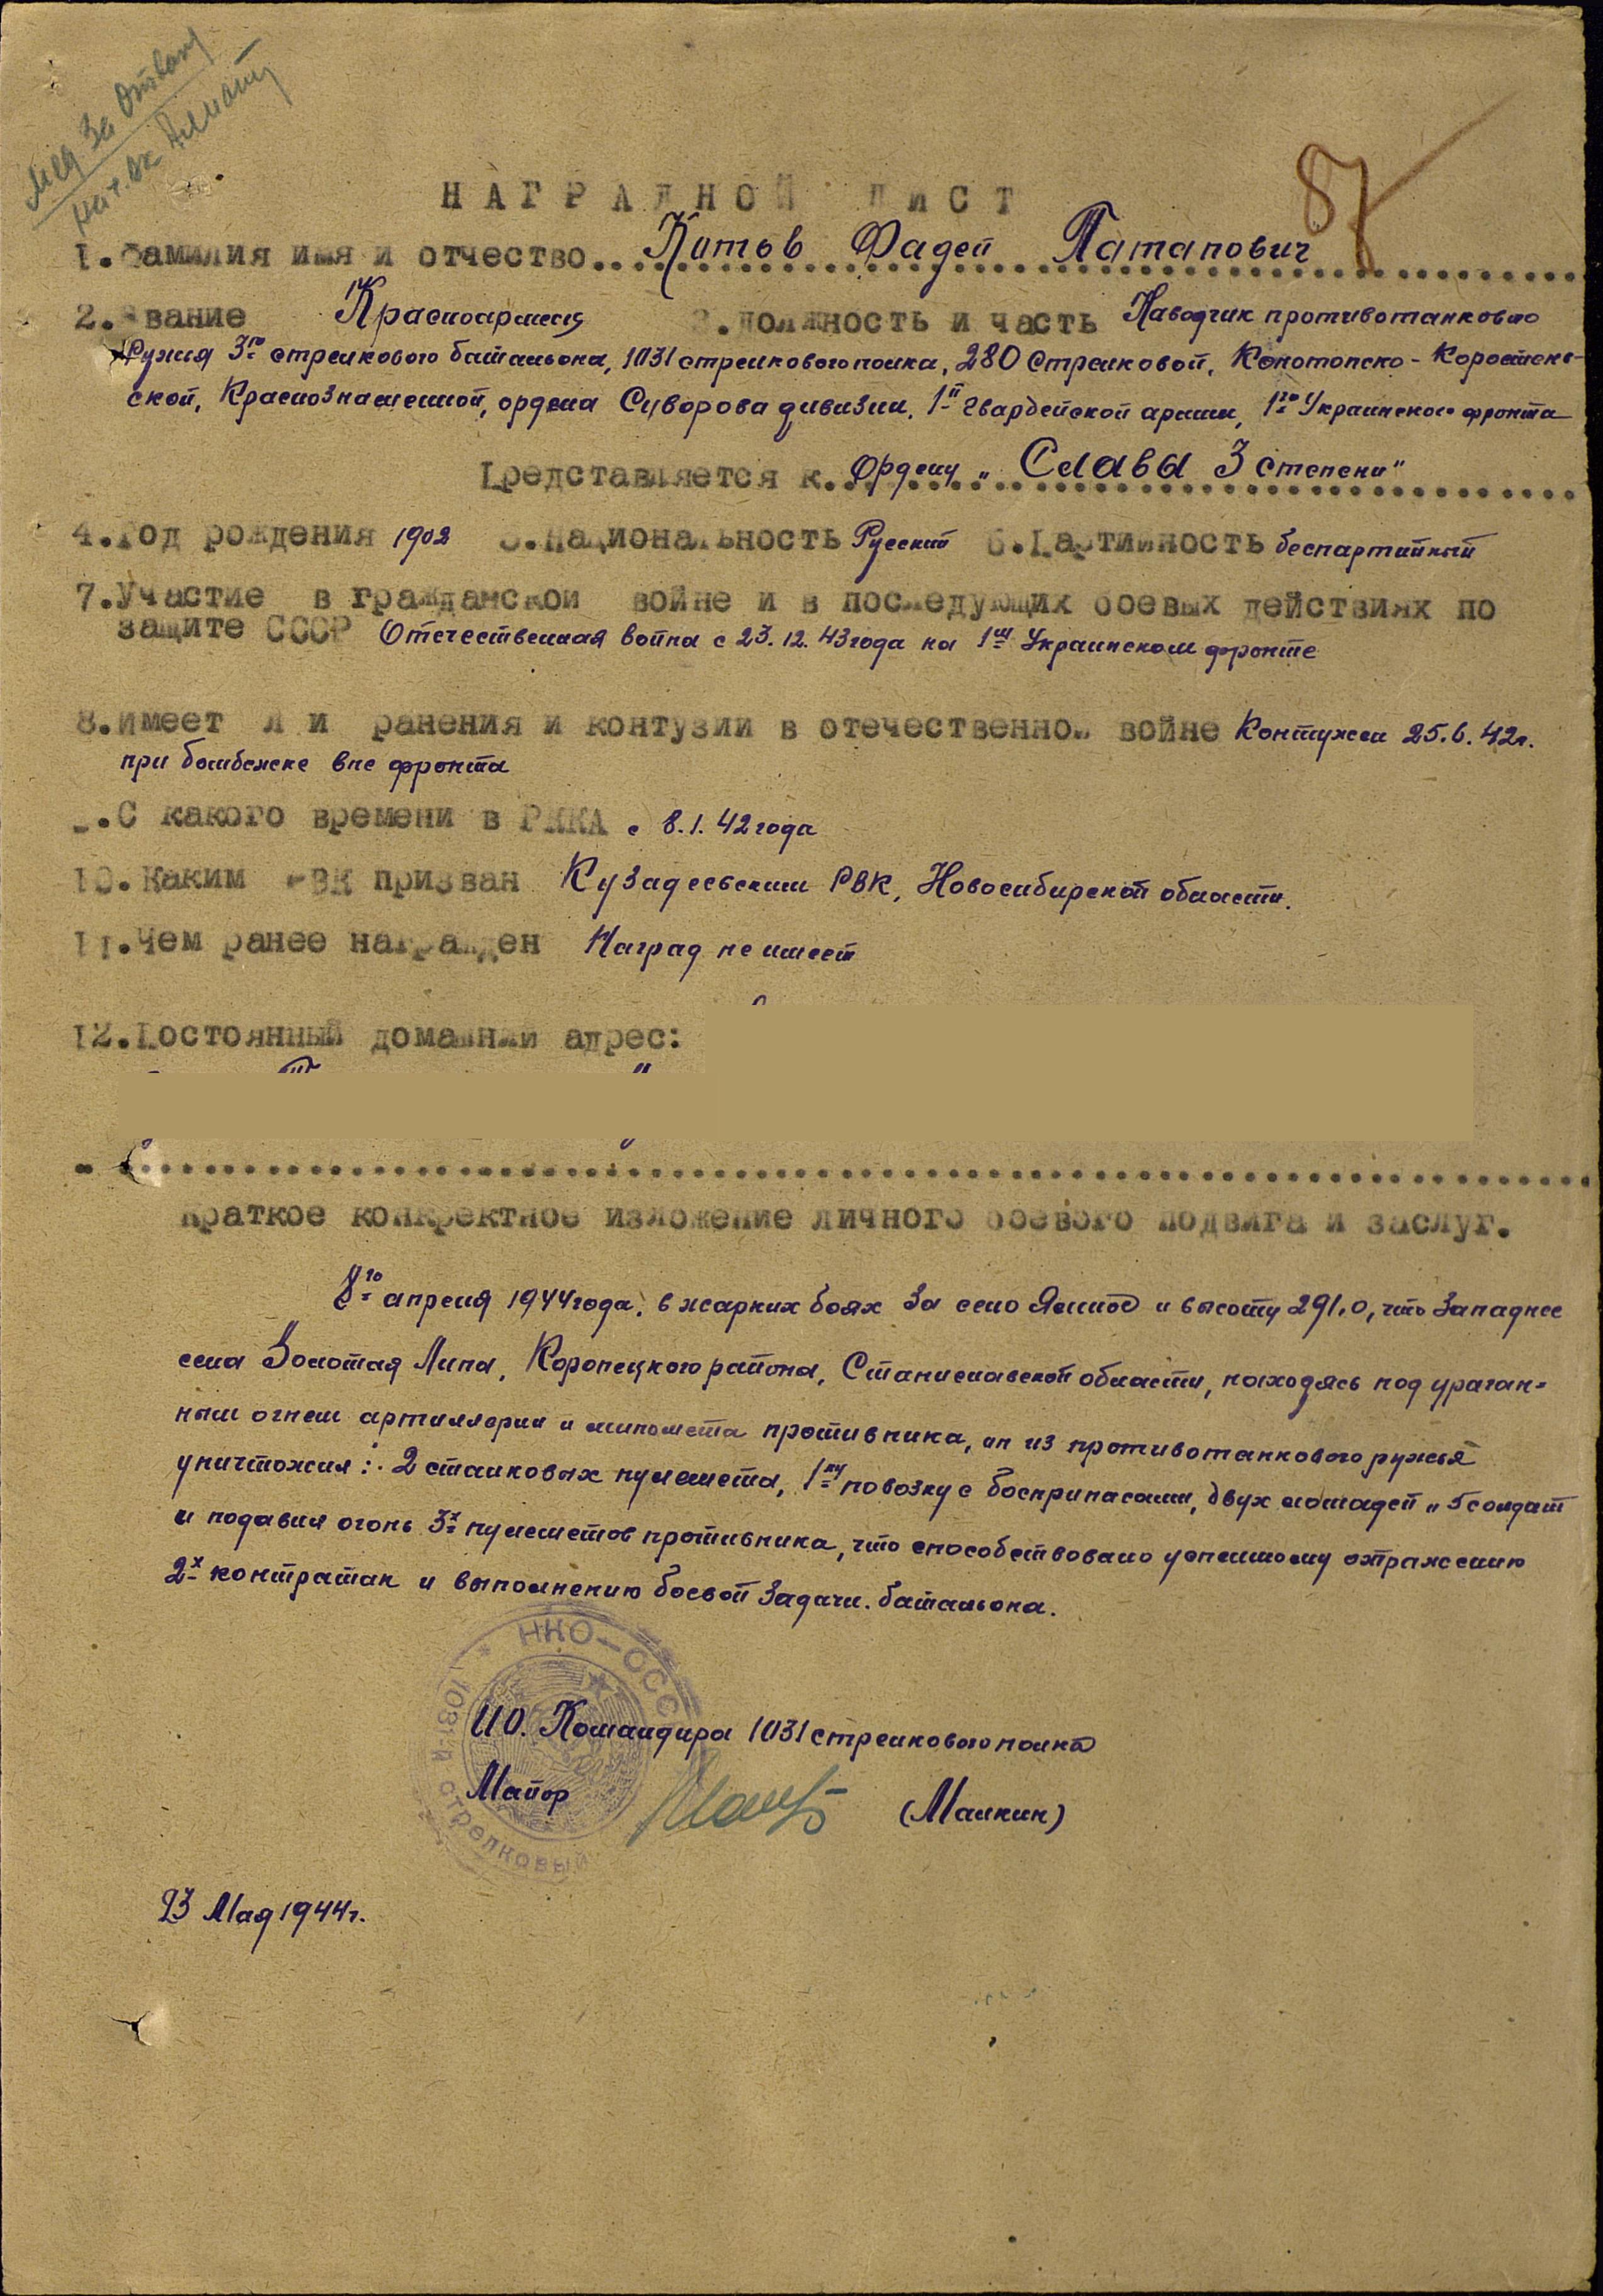 Мед За Отвагу
87
НАГРАДНОЙ ЛИСТ
1. Фамилия имя и отчество.. Китов Фадей Патапович
2. Звание Красноармеец 3. Должность и часть Наводчик противотанкового
Ружия 3го стрелкового батальона, 1031 стрелкового полка, 280 Стрелковой, Конотопско-Коростень-
ской, Краснознаменной, ордена Суворова дивизии, 1й Гвардейской армии, 1го Украинского фронта
Представляется к.. Ордену „Славы 3 степени"
4. Год рождения 1902 5. Национальность Русский 6. Партийность беспартийный
7. Участие в гражданской войне и в последующих боевых действиях по
защите СССР Отечественная война с 23.12.43 года на 1м Украинском фронте
8. Имеет л и ранения и контузии в отечественной войне Контужен 25.6.42г.
при бомбежке вне фронта
9. С какого времени в РККА с 8.1.42 года
10. Каким РВК призван Кузадеевским РВК, Новосибирской области.
11. Чем ранее награжден Наград не имеет
12. Постоянный домашний адрес:
Краткое конкретное изложение личного боевого подвига и заслуг.
8го апреля 1944 года, в жарких боях за село и высоту 291,0, что Западнее
села Золотая Липа, Коропецкого района, Станиславской области, находясь под ураган-
ным огнем артиллерии и миномета противника, он из противотанкового ружья
уничтожил: 2 станковых пулемета, 1ну повозку с боеприпасами, двух лошадей и 5 солдат
и подавил огонь 3х пулеметов противника, что способствовало успешному отражению
2х контратак и выполнению боевой Задачи батальона.
НКО-ССС
1031-й стрелковый
ИО. Командира 1031 стрелкового полка
Майор (Малкин)
23 Мая 1944г.